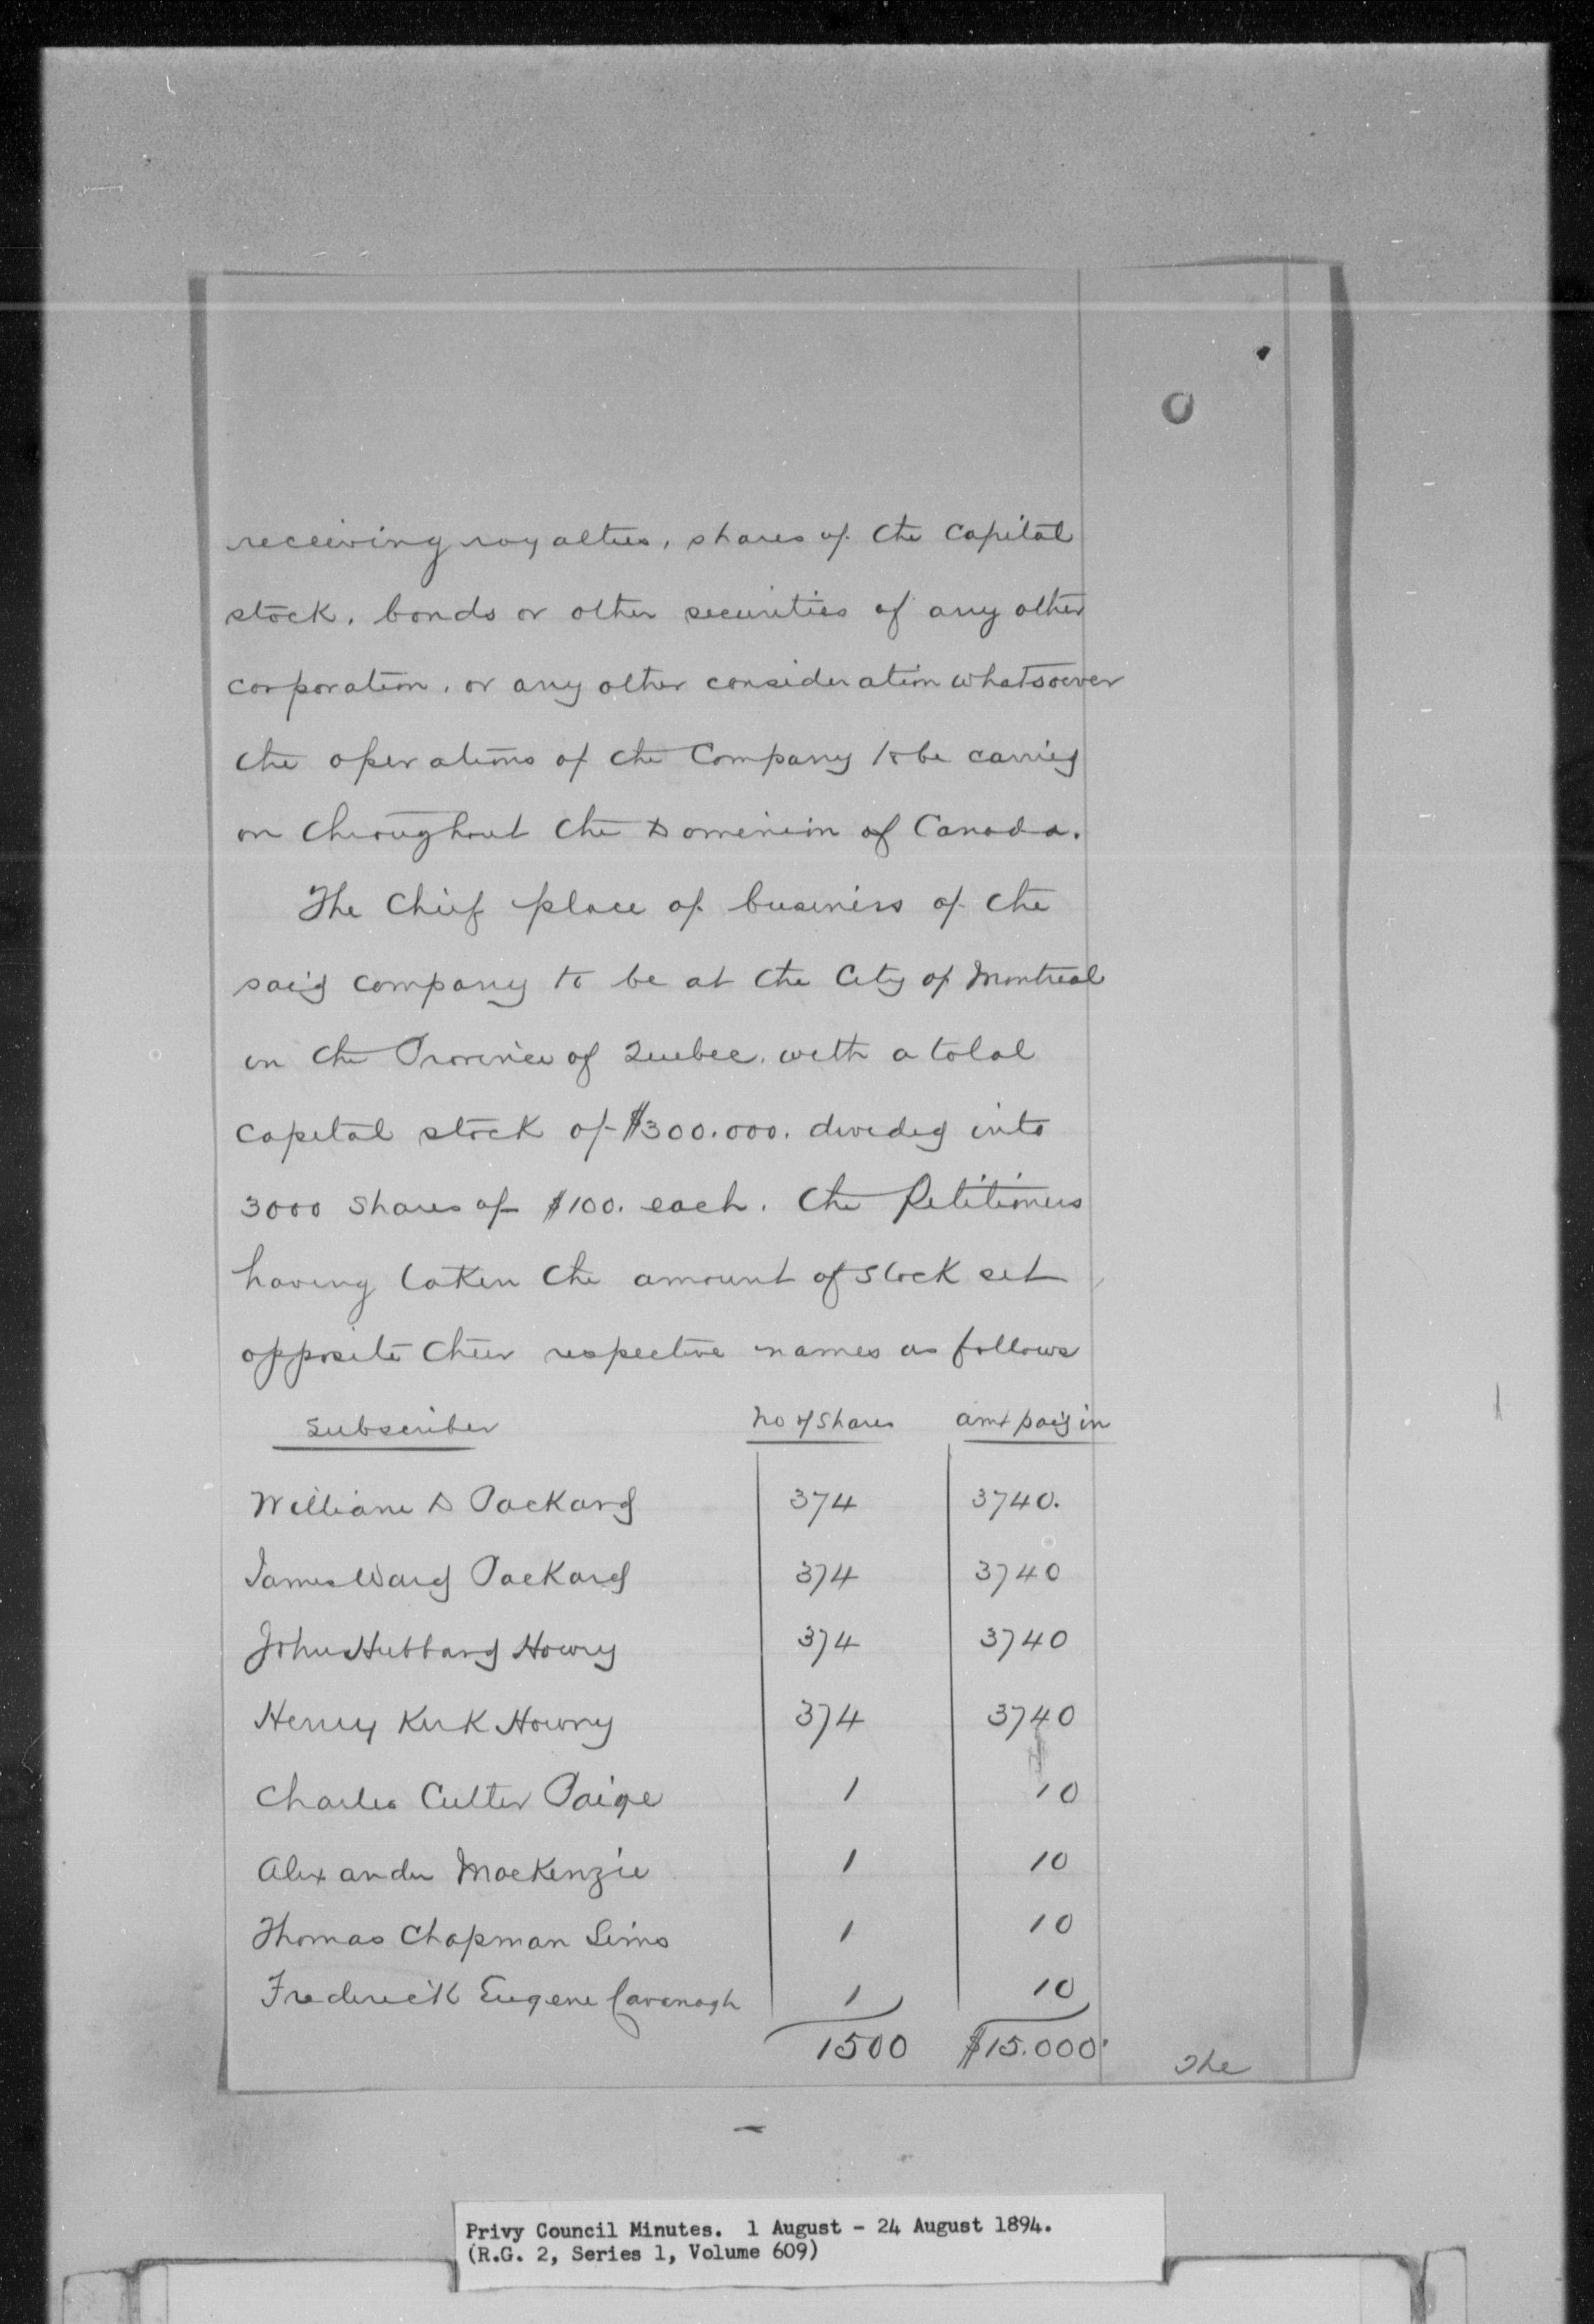 receiving royalties, shares of the Capital
stock, bonds or other securities of any other
corporation, or any other consideration whatsoever
the operations of the Company to be carried
on throughout the Dominion of Canada.
The Chief place of business of the
said company to be at the City of Montreal
in the Province of Quebec, with a total
capital stock of $300.000. divided into
3000 Shares of $100. each. The Petitioners
having taken the amount of stock set
opposite their respective names as follows
Subscriber No of Shares amt paid in
William D Packard 374 3740.
James Ward Packard 374 3740
John Hubbard Howry 374 3740
Henry Kirk Howry 374 3740
Charles Cutler Paige 1 10
Alexander Mackenzie 1 10
Thomas Chapman Sims 1 10
Frederick Eugene Cavanagh 1 10
1500 $15.000.
The
Privy Council Minutes. 1 August - 24 August 1894.
(R.G. 2, Series 1, Volume 609)